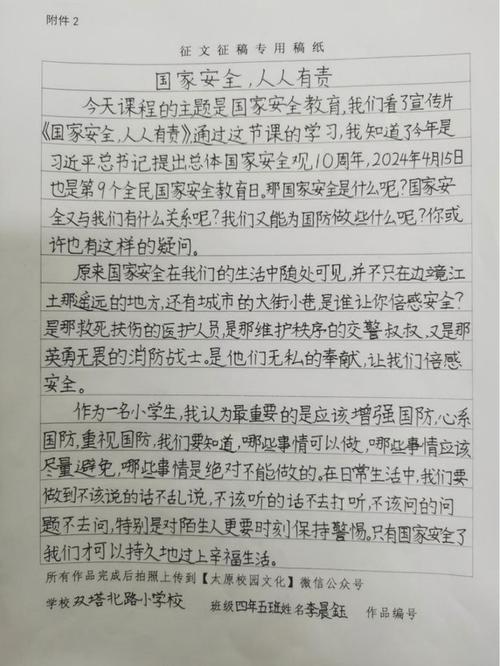 附件2
征文征稿专用稿纸
国家安全,人人有责
今天课程的主题是国家安全教育,我们看了宣传片
《国家安全,人人有责》,通过这节课的学习,我知道了今年是
习近平总书记提出总体国家安全观,10周年,2024年4月15日
也是第9个全民国家安全教育日。那国家安全是什么呢?国家安
全又与我们有什么关系呢?我们又能为国防做些什么呢?你或
许也有这样的疑问。
原来国家安全在我们的生活中随处可见,并不只在边境江
土那遥远的地方,还有城市的大街小巷是谁让你倍感安全?
是那救死扶伤的医护人员,是那维护秩序的交警叔叔,又是那
英勇无畏的消防战士。是他们无私的奉献,让我们倍感
安全。
作为一名小学生,我认为最重要的是应该增强国防,心系
国防,重视国防,我们要知道,哪些事情可以做,哪些事情应该
尽量避免,哪些事情是绝对不能做的。在日常生活中,我们要
做到不该说的话不乱说,不该听的话不去打听,不该问的问
题不去问,特别是对陌生人更要时刻保持警惕。只有国家安全了
我们才可以持久地过上幸福生活。
所有作品完成后拍照上传到【太原校园文化】微信公众号
学校 双塔北路小学校 班级四年五班姓名李晨钰 作品编号